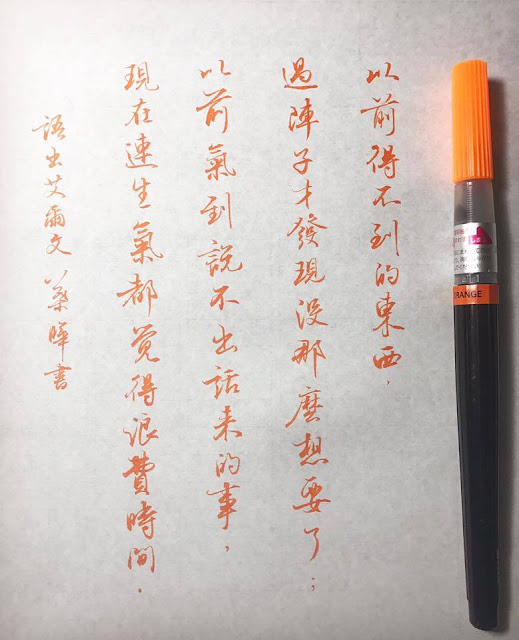 以前得不到的東西，
過陣子才發現沒那麼想要了；
以前氣到說不出話来的事，
現在連生氣都覺得浪費時間。
語出艾爾文 葉曄書
RANGE